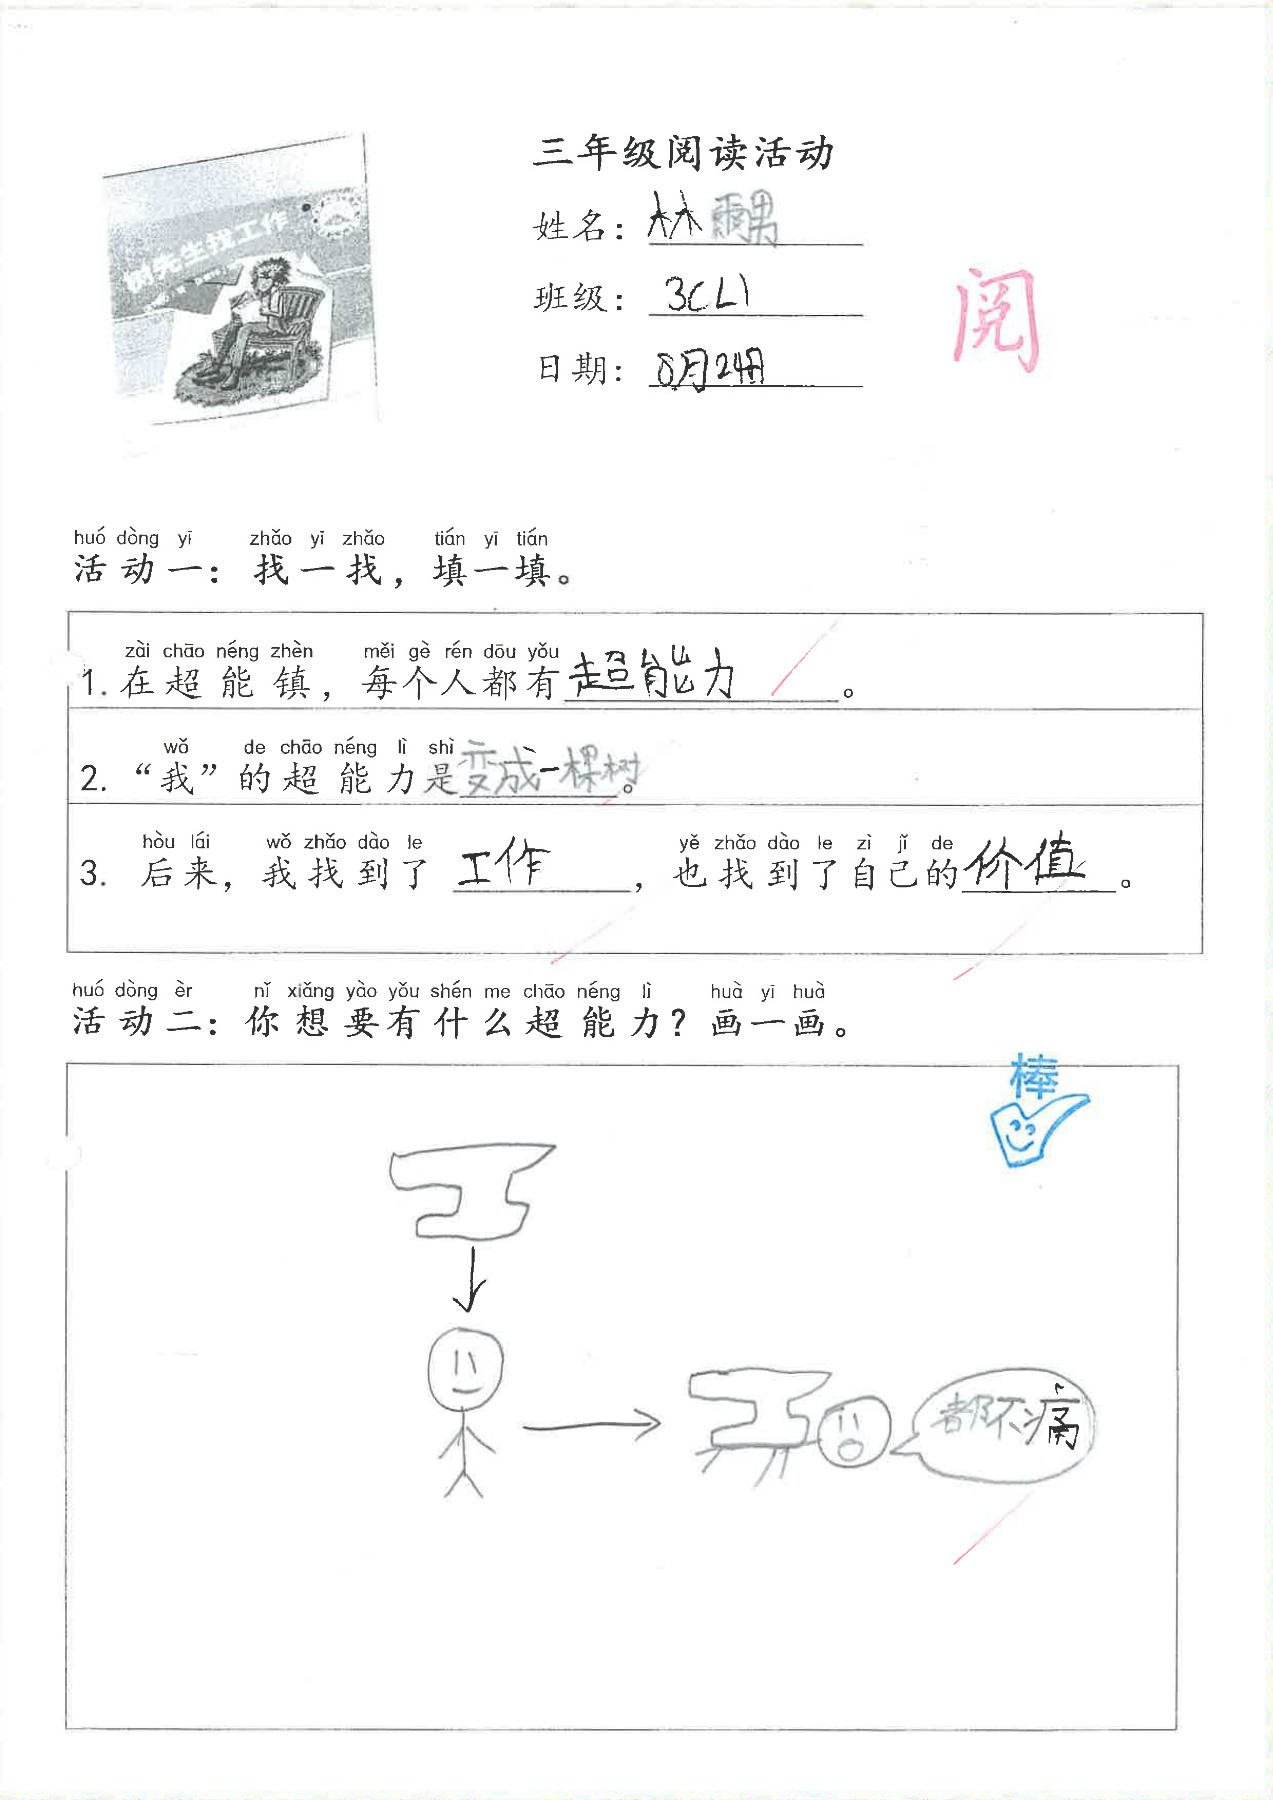 三年级阅读活动
树先生找工作
姓名：林
班级：3CL1
日期：8月24日
阅
huó dòng yī zhǎo yī zhǎo tián yī tián
活动一：找一找，填一填。
zài chāo néng zhèn měi gè rén dōu yǒu
1. 在超能镇，每个人都有超能力。
wǒ de chāo néng lì shì
2. “我”的超能力是变成一棵树。
hòu lái wǒ zhǎo dào le yě zhǎo dào le zì jǐ de
3. 后来，我找到了工作，也找到了自己的价值。
huó dòng èr nǐ xiǎng yào yǒu shén me chāo néng lì huà yī huà
活动二：你想要有什么超能力？画一画。
棒
都不痛